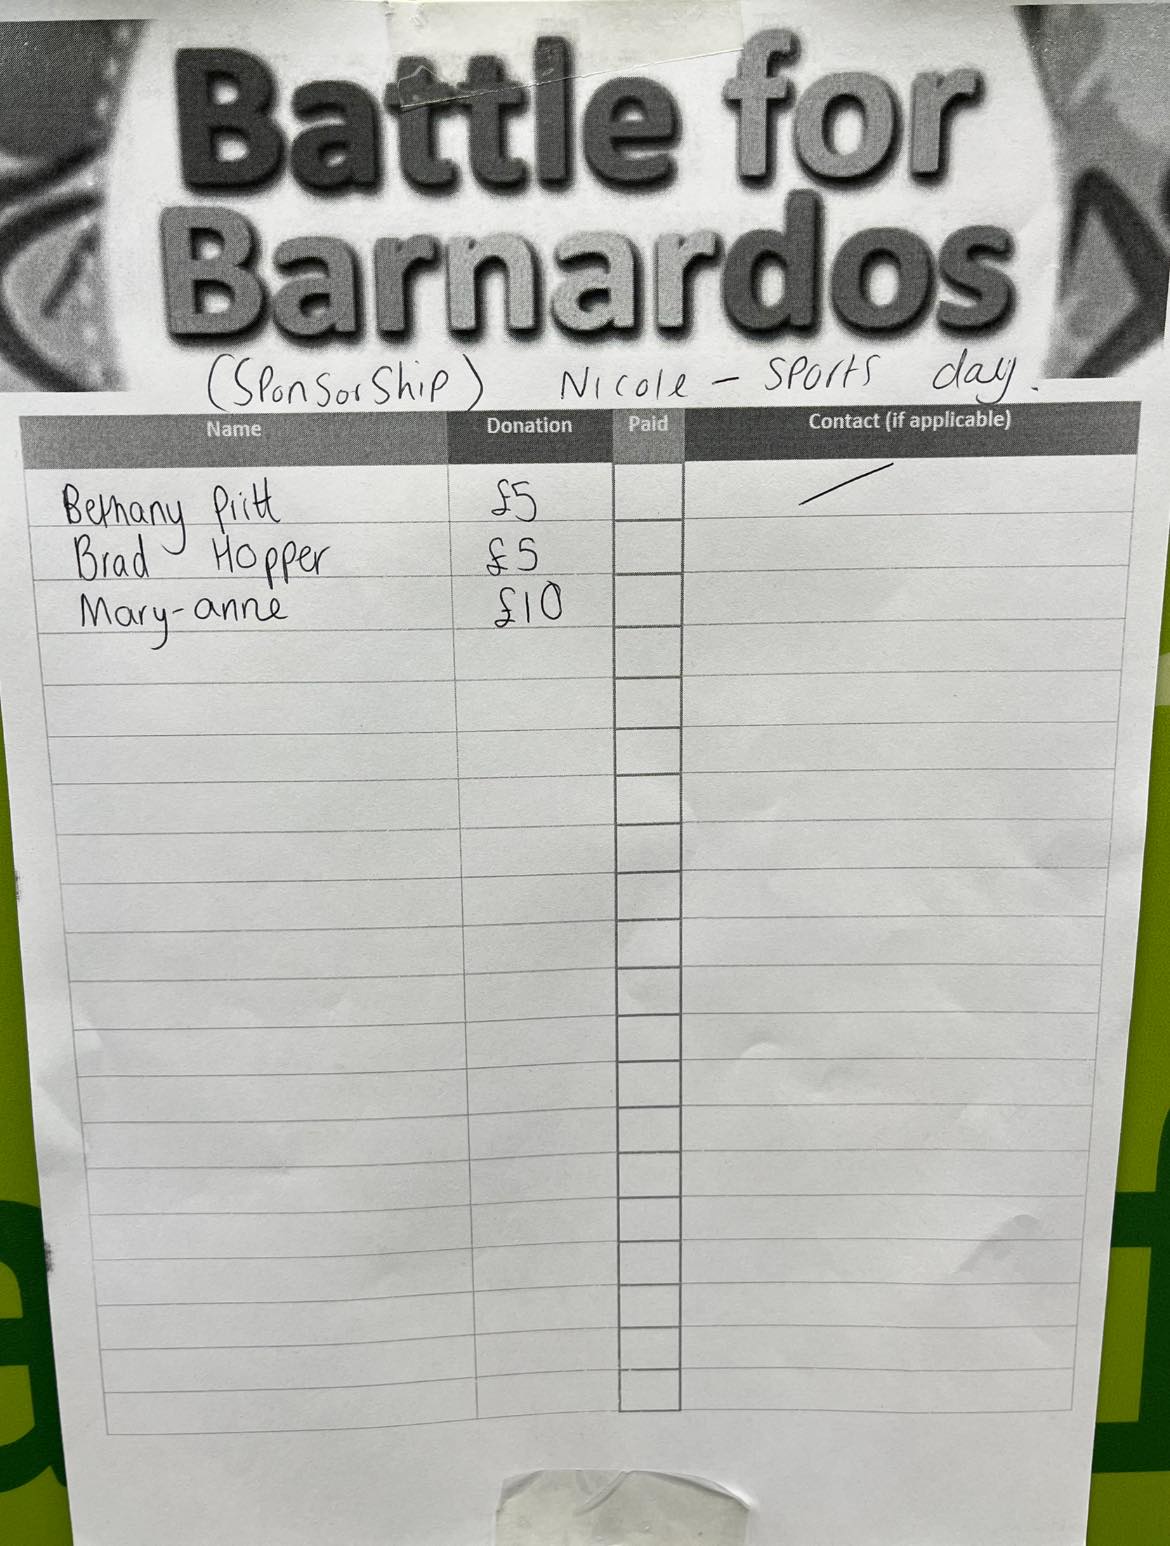 Battle for
Barnardos
(Sponsorship) Nicole - sports day.
Name Donation Paid Contact (if applicable)
Bethany Pritt £5
Brad Hopper £5
Mary-anne £10